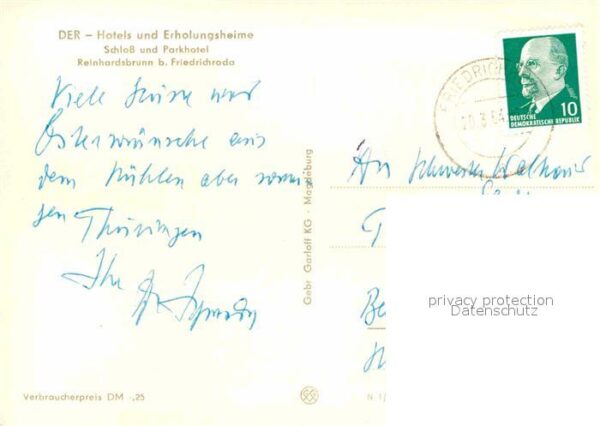 DER – Hotels und Erholungsheime
Schloß und Parkhotel
Reinhardsbrunn b. Friedrichroda
Viele Grüße und
Osterwünsche aus
dem kühlen aber sonni-
gen Thüringen
Ihr
Gebr. Garloff KG · Magdeburg
FRIEDRICH
20.3.64
10
DEUTSCHE
DEMOKRATISCHE REPUBLIK
An Schwester
privacy protection
Datenschutz
Verbraucherpreis DM -,25
N 1/